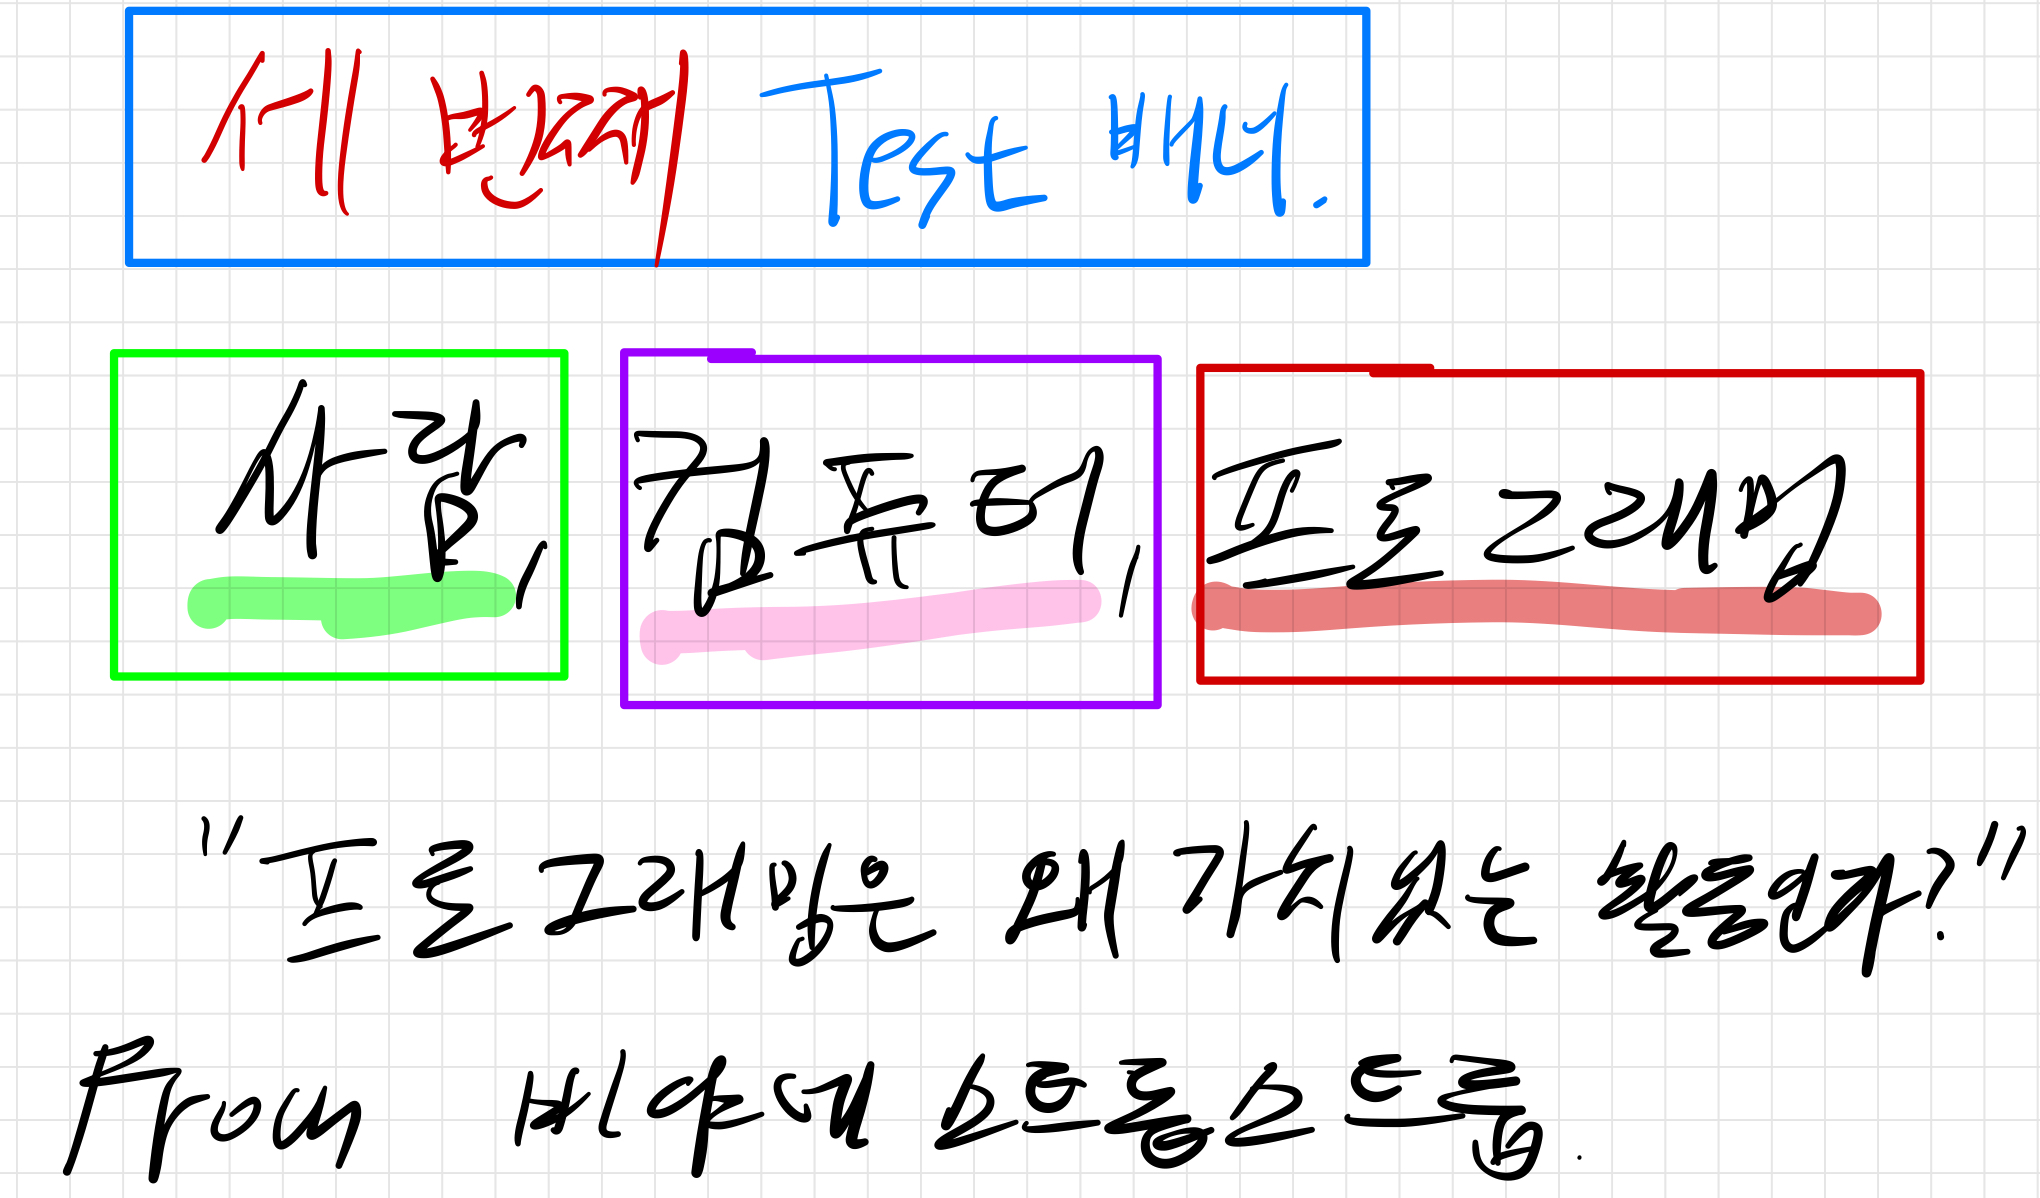 세 번째 Test 배너.
사람, 컴퓨터, 프로그래밍
"프로그래밍은 왜 가치 있는 활동인가?"
From 비야네 스트롭스트룹.